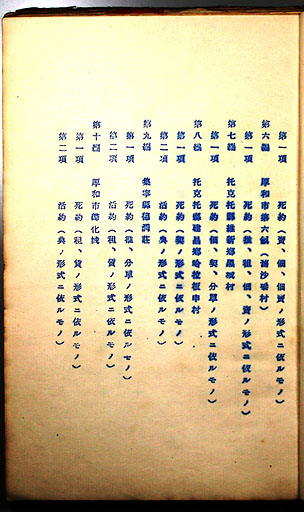 第一項 死約(賣、佃、佃賣ノ形式ニ依ルモノ)
第六編 厚和市第六鎮(南沙村)
第一項 死約(賣、租、佃、賣ノ形式ニ依ルモノ)
第七編 托克托縣維新鄉黑城村
第一項 死約(佃、契、分單ノ形式ニ依ルモノ)
第八編 托克托縣建昌鄉哈拉板申村
第一項 死約(契ノ形式ニ依ルモノ)
第二項 活約(典ノ形式ニ依ルモノ)
第九編 集寧縣莊
第一項 死約(推、分單ノ形式ニ依ルモノ)
第二項 活約(租、質ノ形式ニ依ルモノ)
第十編 厚和市歸化城
第一項 死約(租、質ノ形式ニ依ルモノ)
第二項 活約(典ノ形式ニ依ルモノ)